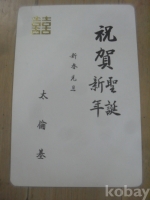 囍
祝賀 聖誕
新年
新春元旦
太倫基
kobay